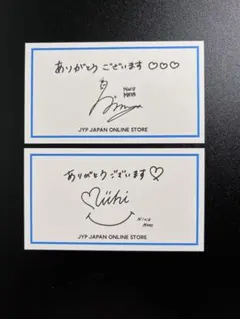 ありがとう ございます ♡♡♡
NIZIU
MAYA
JYP JAPAN ONLINE STORE
ありがとう ございます ♡
Miihi
NIZIU
JYP JAPAN ONLINE STORE